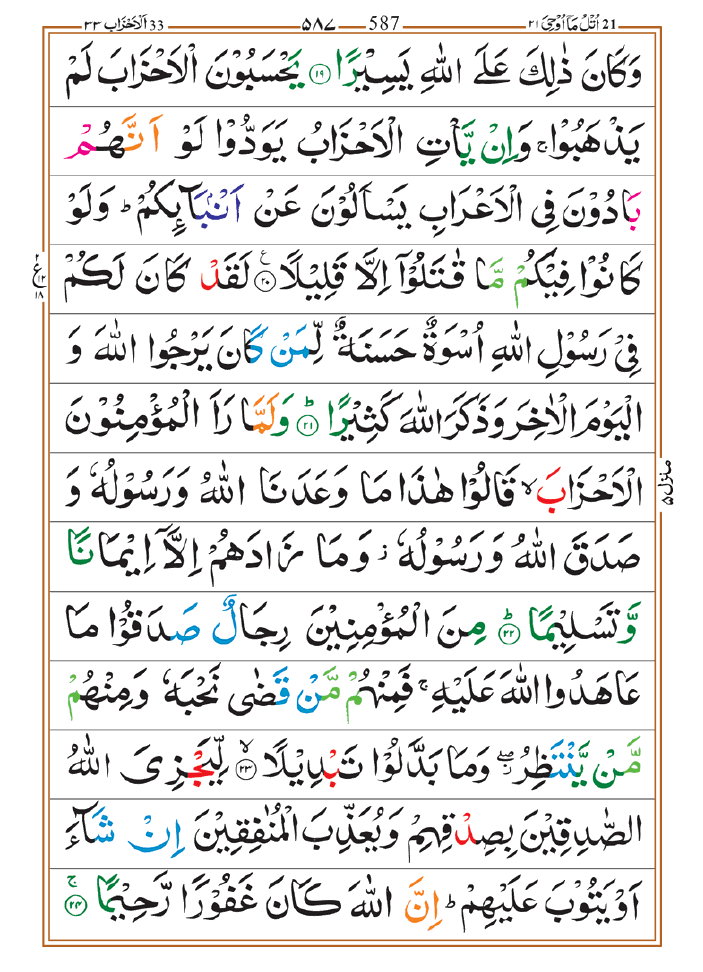 21 اُتْلُ مَاۤ اُوْحِیَ ۲۱ 587 ۵۸۷ 33 اَلْاَحْزَاب ۳۳
وَكَانَ ذٰلِكَ عَلَی اللّٰهِ یَسِیْرًا ۱۹ یَحْسَبُوْنَ الْاَحْزَابَ لَمْ
یَذْهَبُوْا ۚ وَاِنْ یَّاْتِ الْاَحْزَابُ یَوَدُّوْا لَوْ اَنَّهُمْ
بَادُوْنَ فِی الْاَعْرَابِ یَسْاَلُوْنَ عَنْ اَنْۢبَآئِكُمْ ؕ وَلَوْ
كَانُوْا فِیْكُمْ مَّا قٰتَلُوْۤا اِلَّا قَلِیْلًا ۲۰ ع لَقَدْ كَانَ لَكُمْ
۲ ع ۱۲ ۱۸
فِیْ رَسُوْلِ اللّٰهِ اُسْوَةٌ حَسَنَةٌ لِّمَنْ كَانَ یَرْجُوا اللّٰهَ وَ
الْیَوْمَ الْاٰخِرَ وَذَكَرَ اللّٰهَ كَثِیْرًا ؕ ۲۱ وَلَمَّا رَاَ الْمُؤْمِنُوْنَ
منزل ۵
الْاَحْزَابَ ۙ قَالُوْا هٰذَا مَا وَعَدَنَا اللّٰهُ وَرَسُوْلُهٗ وَ
صَدَقَ اللّٰهُ وَرَسُوْلُهٗ ؗ وَمَا زَادَهُمْ اِلَّاۤ اِیْمَانًا
وَّتَسْلِیْمًا ؕ ۲۲ مِنَ الْمُؤْمِنِیْنَ رِجَالٌ صَدَقُوْا مَا
عَاهَدُوا اللّٰهَ عَلَیْهِ ۚ فَمِنْهُمْ مَّنْ قَضٰی نَحْبَهٗ وَمِنْهُمْ
مَّنْ یَّنْتَظِرُ ۖؗ وَمَا بَدَّلُوْا تَبْدِیْلًا ۙ ۲۳ لِّیَجْزِیَ اللّٰهُ
الصّٰدِقِیْنَ بِصِدْقِهِمْ وَیُعَذِّبَ الْمُنٰفِقِیْنَ اِنْ شَآءَ
اَوْ یَتُوْبَ عَلَیْهِمْ ؕ اِنَّ اللّٰهَ كَانَ غَفُوْرًا رَّحِیْمًا ۚ ۲۴